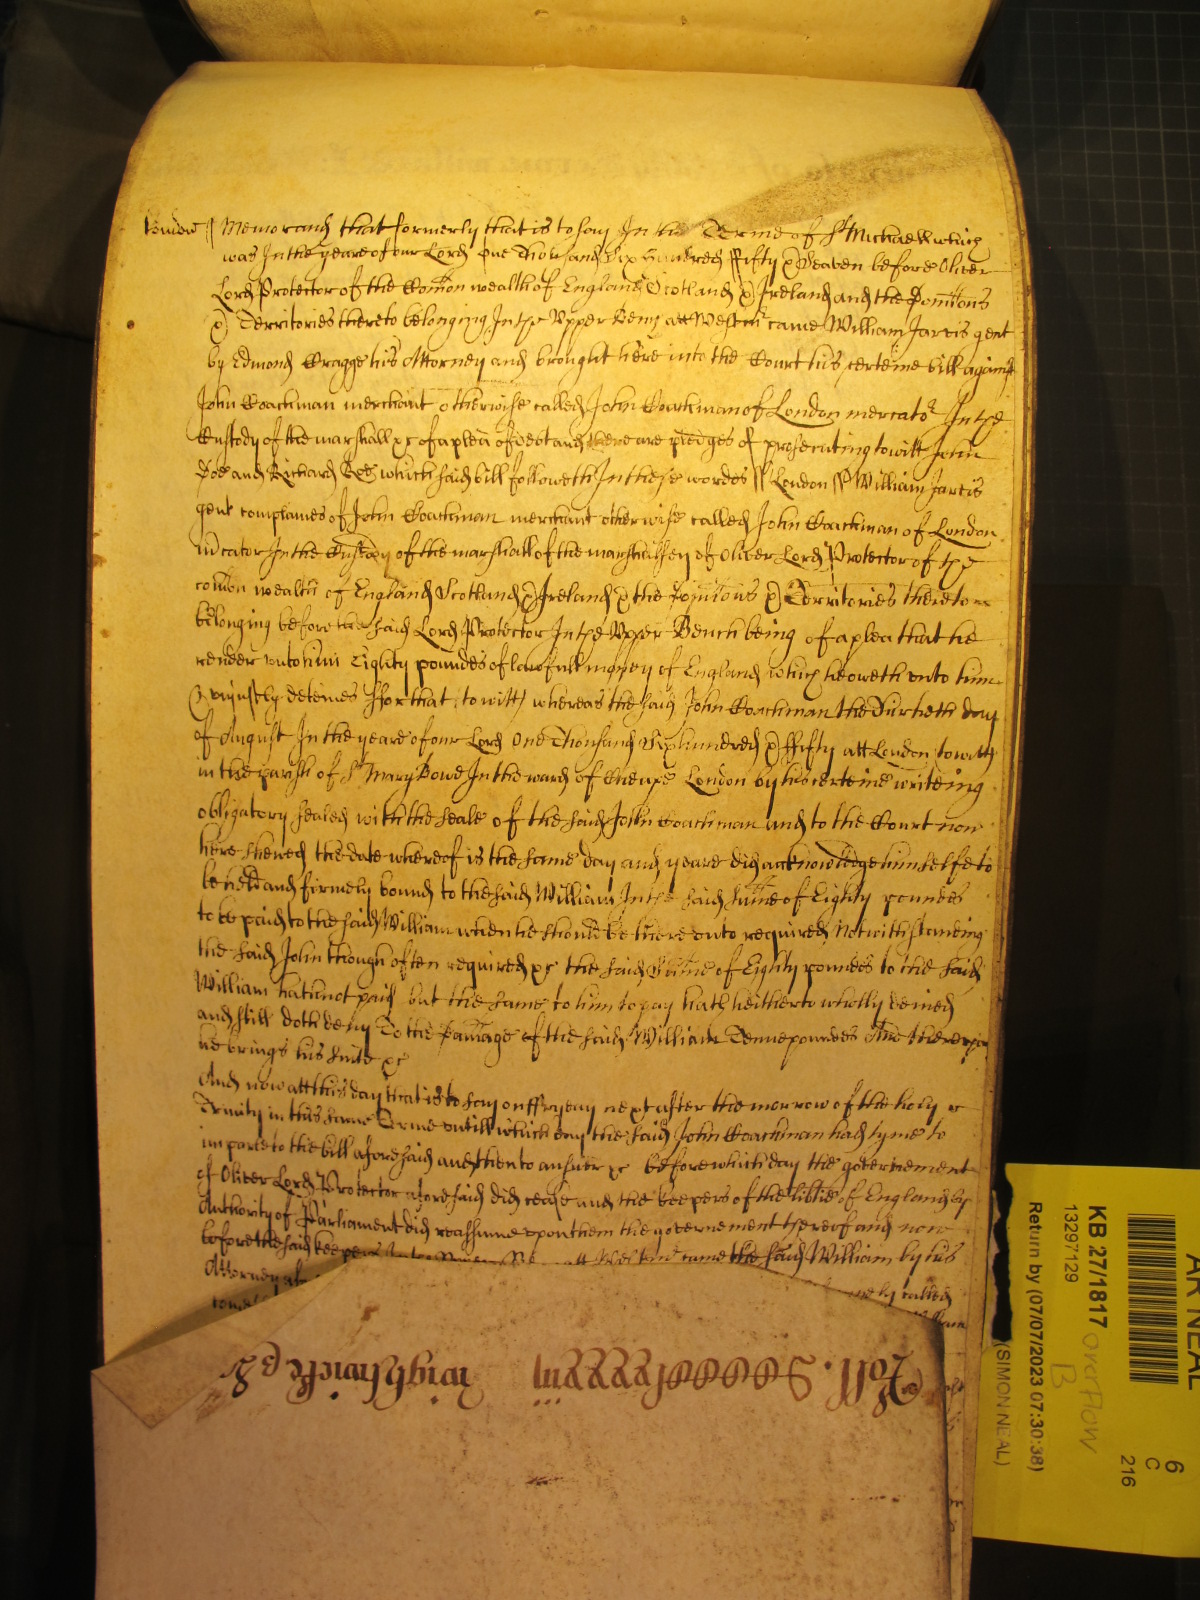 London ∬ Memorand that formerly that is to say In the Terme of St Michaell which
was In the yeare of our Lord One Thousand Six hundred ffifty & Seaven before Oliver
Lord Protector of the Comon wealth of England Scotland & Ireland and the Dominions
& Territories thereto belonging In the Upper Bench att Westmr came William Jarvis gent
by Edmond Cragge his Attorney and brought here into the Court his certeine bill against
John Coachman merchant otherwise called John Coachman of London mercator In the
Custody of the marshall &c of a plea of debt and there are pledges of prosecuting to witt John
Doe and Richard Roe which said bill followeth In these wordes ∬ London ∬ William Jarvis
gent complaines of John Coachman merchant otherwise called John Coachman of London
mcator In the Custody of the marshall of the marshallsey of Oliver Lord Protector of the
comon wealth of England Scotland & Ireland & the Dominions & Territories thereto
belonging before the said Lord Protector In the Upper Bench being of a plea that he
render unto him Eighty poundes of lawfull money of England which he oweth unto him
& unjustly deteines ffor that to witt whereas the said John Coachman the Thirtieth day
of August In the yeare of our Lord One Thousand Six hundred & ffifty att London to witt
in the parish of St Mary Bowe In the ward of Cheape London by his certeine writeing
obligatory sealed with the seale of the said John Coachman and to the Court now
here shewed the date whereof is the same day and yeare did acknowledge himselfe to
be held and firmely bound to the said William In the said summe of Eighty poundes
to be paid to the said William when he should be thereunto required Notwithstanding
the said John though often required &c the said Summe of Eighty poundes to the said
William hath not paid but the same to him to pay hath heitherto wholly denied
and still doth deny To the Damage of the said William Tenne poundes And thereupon
he brings his suite &c
And now att this day that is to say on ffryday next after the morrow of the holy
Trinity in this same Terme untill which day the said John Coachman had lyme to
imparle to the bill aforesaid and then to answer &c before which day the governement
of Oliver Lord Protector aforesaid did cease and the keepers of the libtie of England by
Authority of Parliament did reassume upon them the governement thereof and now
before the said keepers In the Upper Bench att Westmr came the said William by his
Attorney
called
Roll. wightwicke
AR NEAL
KB 27/1817 overflow
B
13297129
Return by (07/07/2023 07:30:38)
(SIMON NEAL)
6
C
216